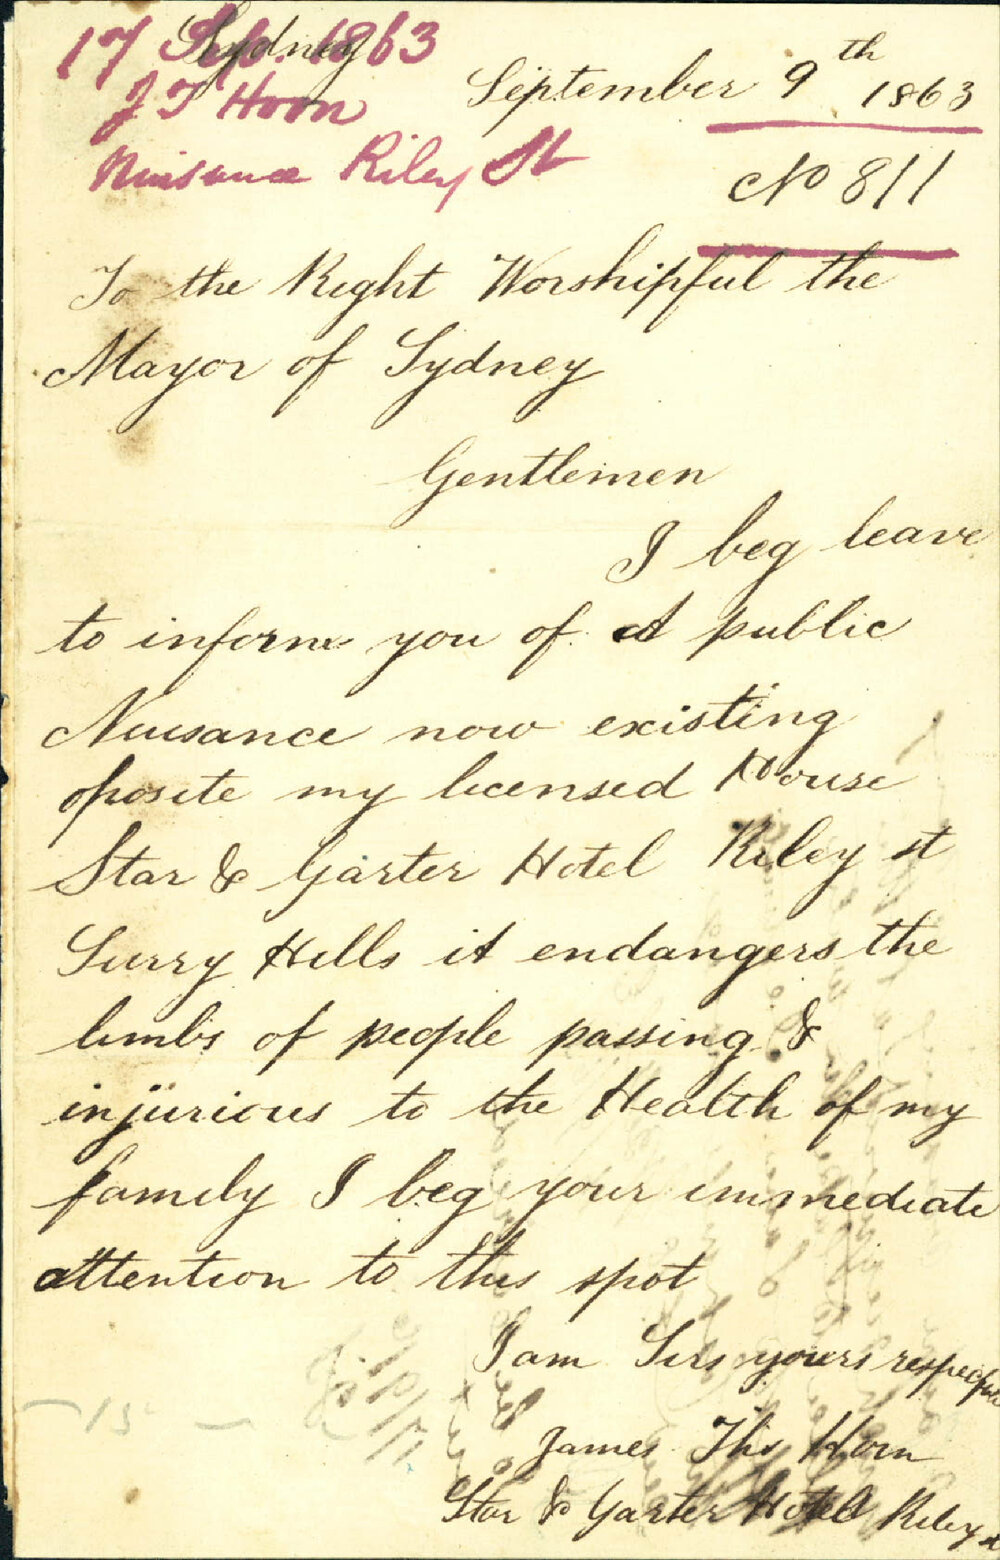 Sydney
17 Sep. 1863
J T Horn
Nuisance Riley St
September 9th 1863
No 811
To the Right Worshipful the
Mayor of Sydney
Gentlemen
I beg leave
to inform you of A public
Nuisance now existing
oposite my licensed House
Star & Garter Hotel Riley st
Surry Hills it endangers the
limbs of people passing &
injurious to the Health of my
family I beg your immediate
attention to this spot
I am Sirs yours respectfu
James Ths Horn
Star & Garter Hotel Riley st